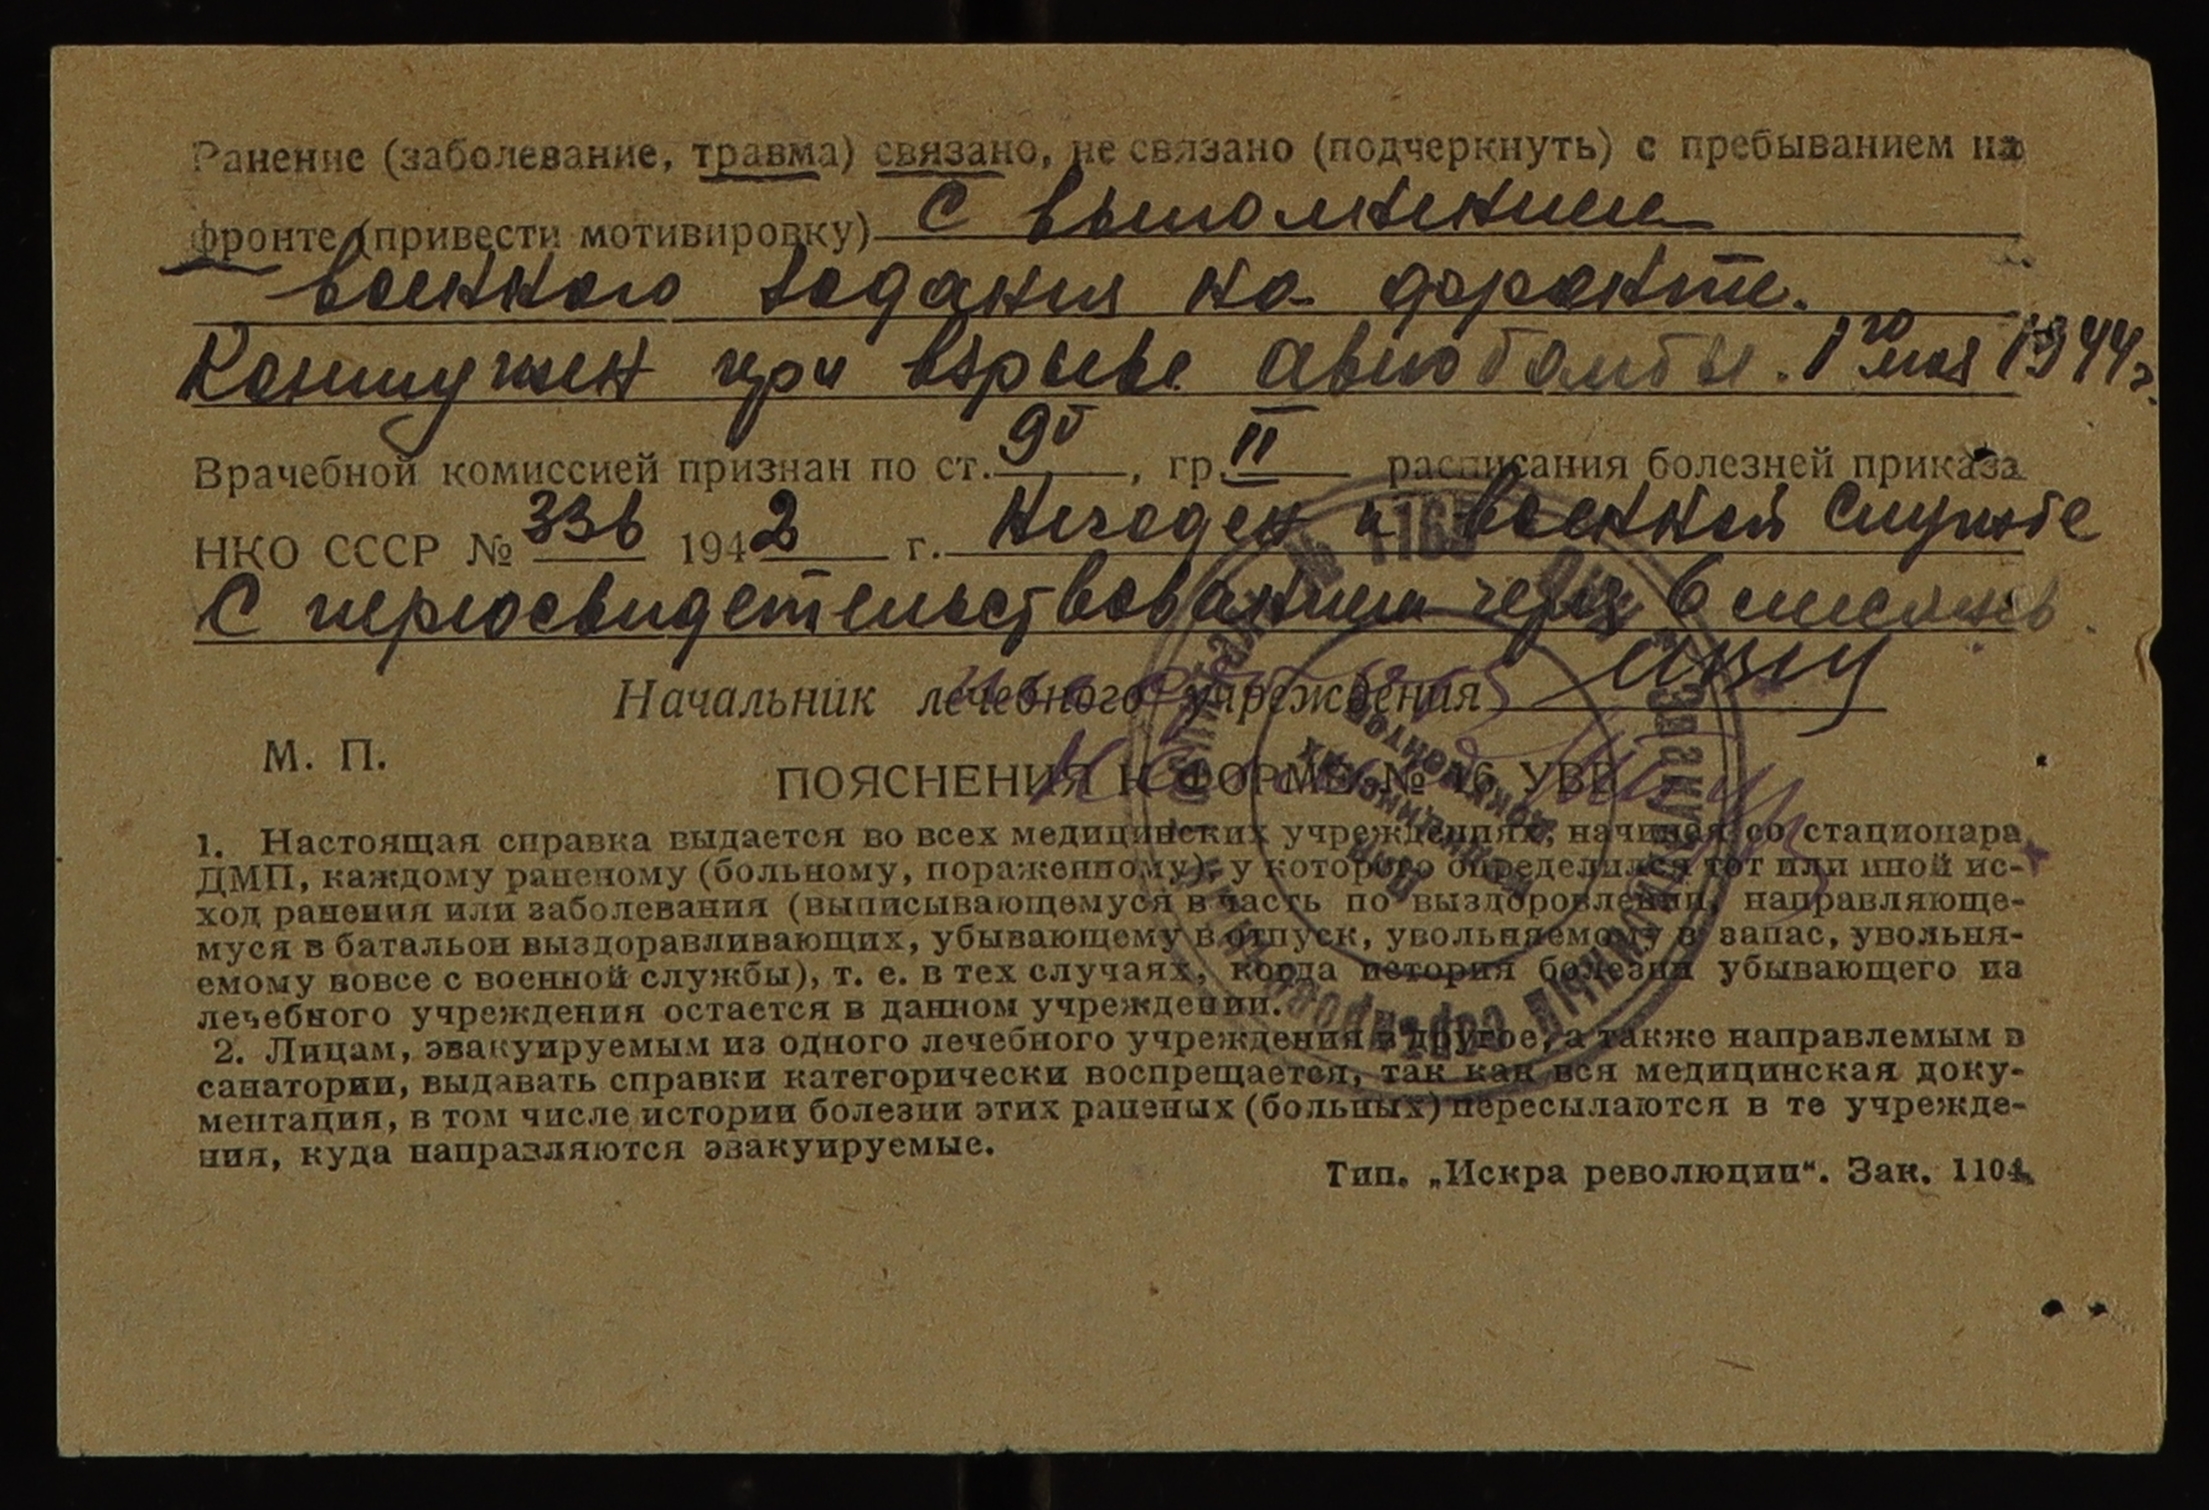 Ранение (заболевание, травма) связано, не связано (подчеркнуть) с пребыванием на
фронте (привести мотивировку) С выполнением
военного задания на фронте.
Контужен при взрыве авиабомбы. 1го мая 1944 г.
Врачебной комиссией признан по ст. 9б, гр. II расписания болезней приказа
НКО СССР № 336 1942 г. Негоден к военной службе
С переосвидетельствованием через 6 месяцев.
Начальник лечебного учреждения
М. П.
ПОЯСНЕНИЯ К ФОРМЕ № 16 УВГ
1. Настоящая справка выдается во всех медицинских учреждениях, начиная со стационара
ДМП, каждому раненому (больному, пораженному), у которого определился тот или иной ис-
ход ранения или заболевания (выписывающемуся в часть по выздоровлении, направляюще-
муся в батальон выздоравливающих, убывающему в отпуск, увольняемому в запас, увольня-
емому вовсе с военной службы), т. е. в тех случаях, когда история болезни убывающего из
лечебного учреждения остается в данном учреждении.
2. Лицам, эвакуируемым из одного лечебного учреждения в другое, а также направлемым в
санатории, выдавать справки категорически воспрещается, так как вся медицинская доку-
ментация, в том числе истории болезни этих раненых (больных) пересылаются в те учрежде-
ния, куда направляются эвакуируемые.
Тип. „Искра революции“. Зак. 1104.
№ 1165
Для
медицинских
документов